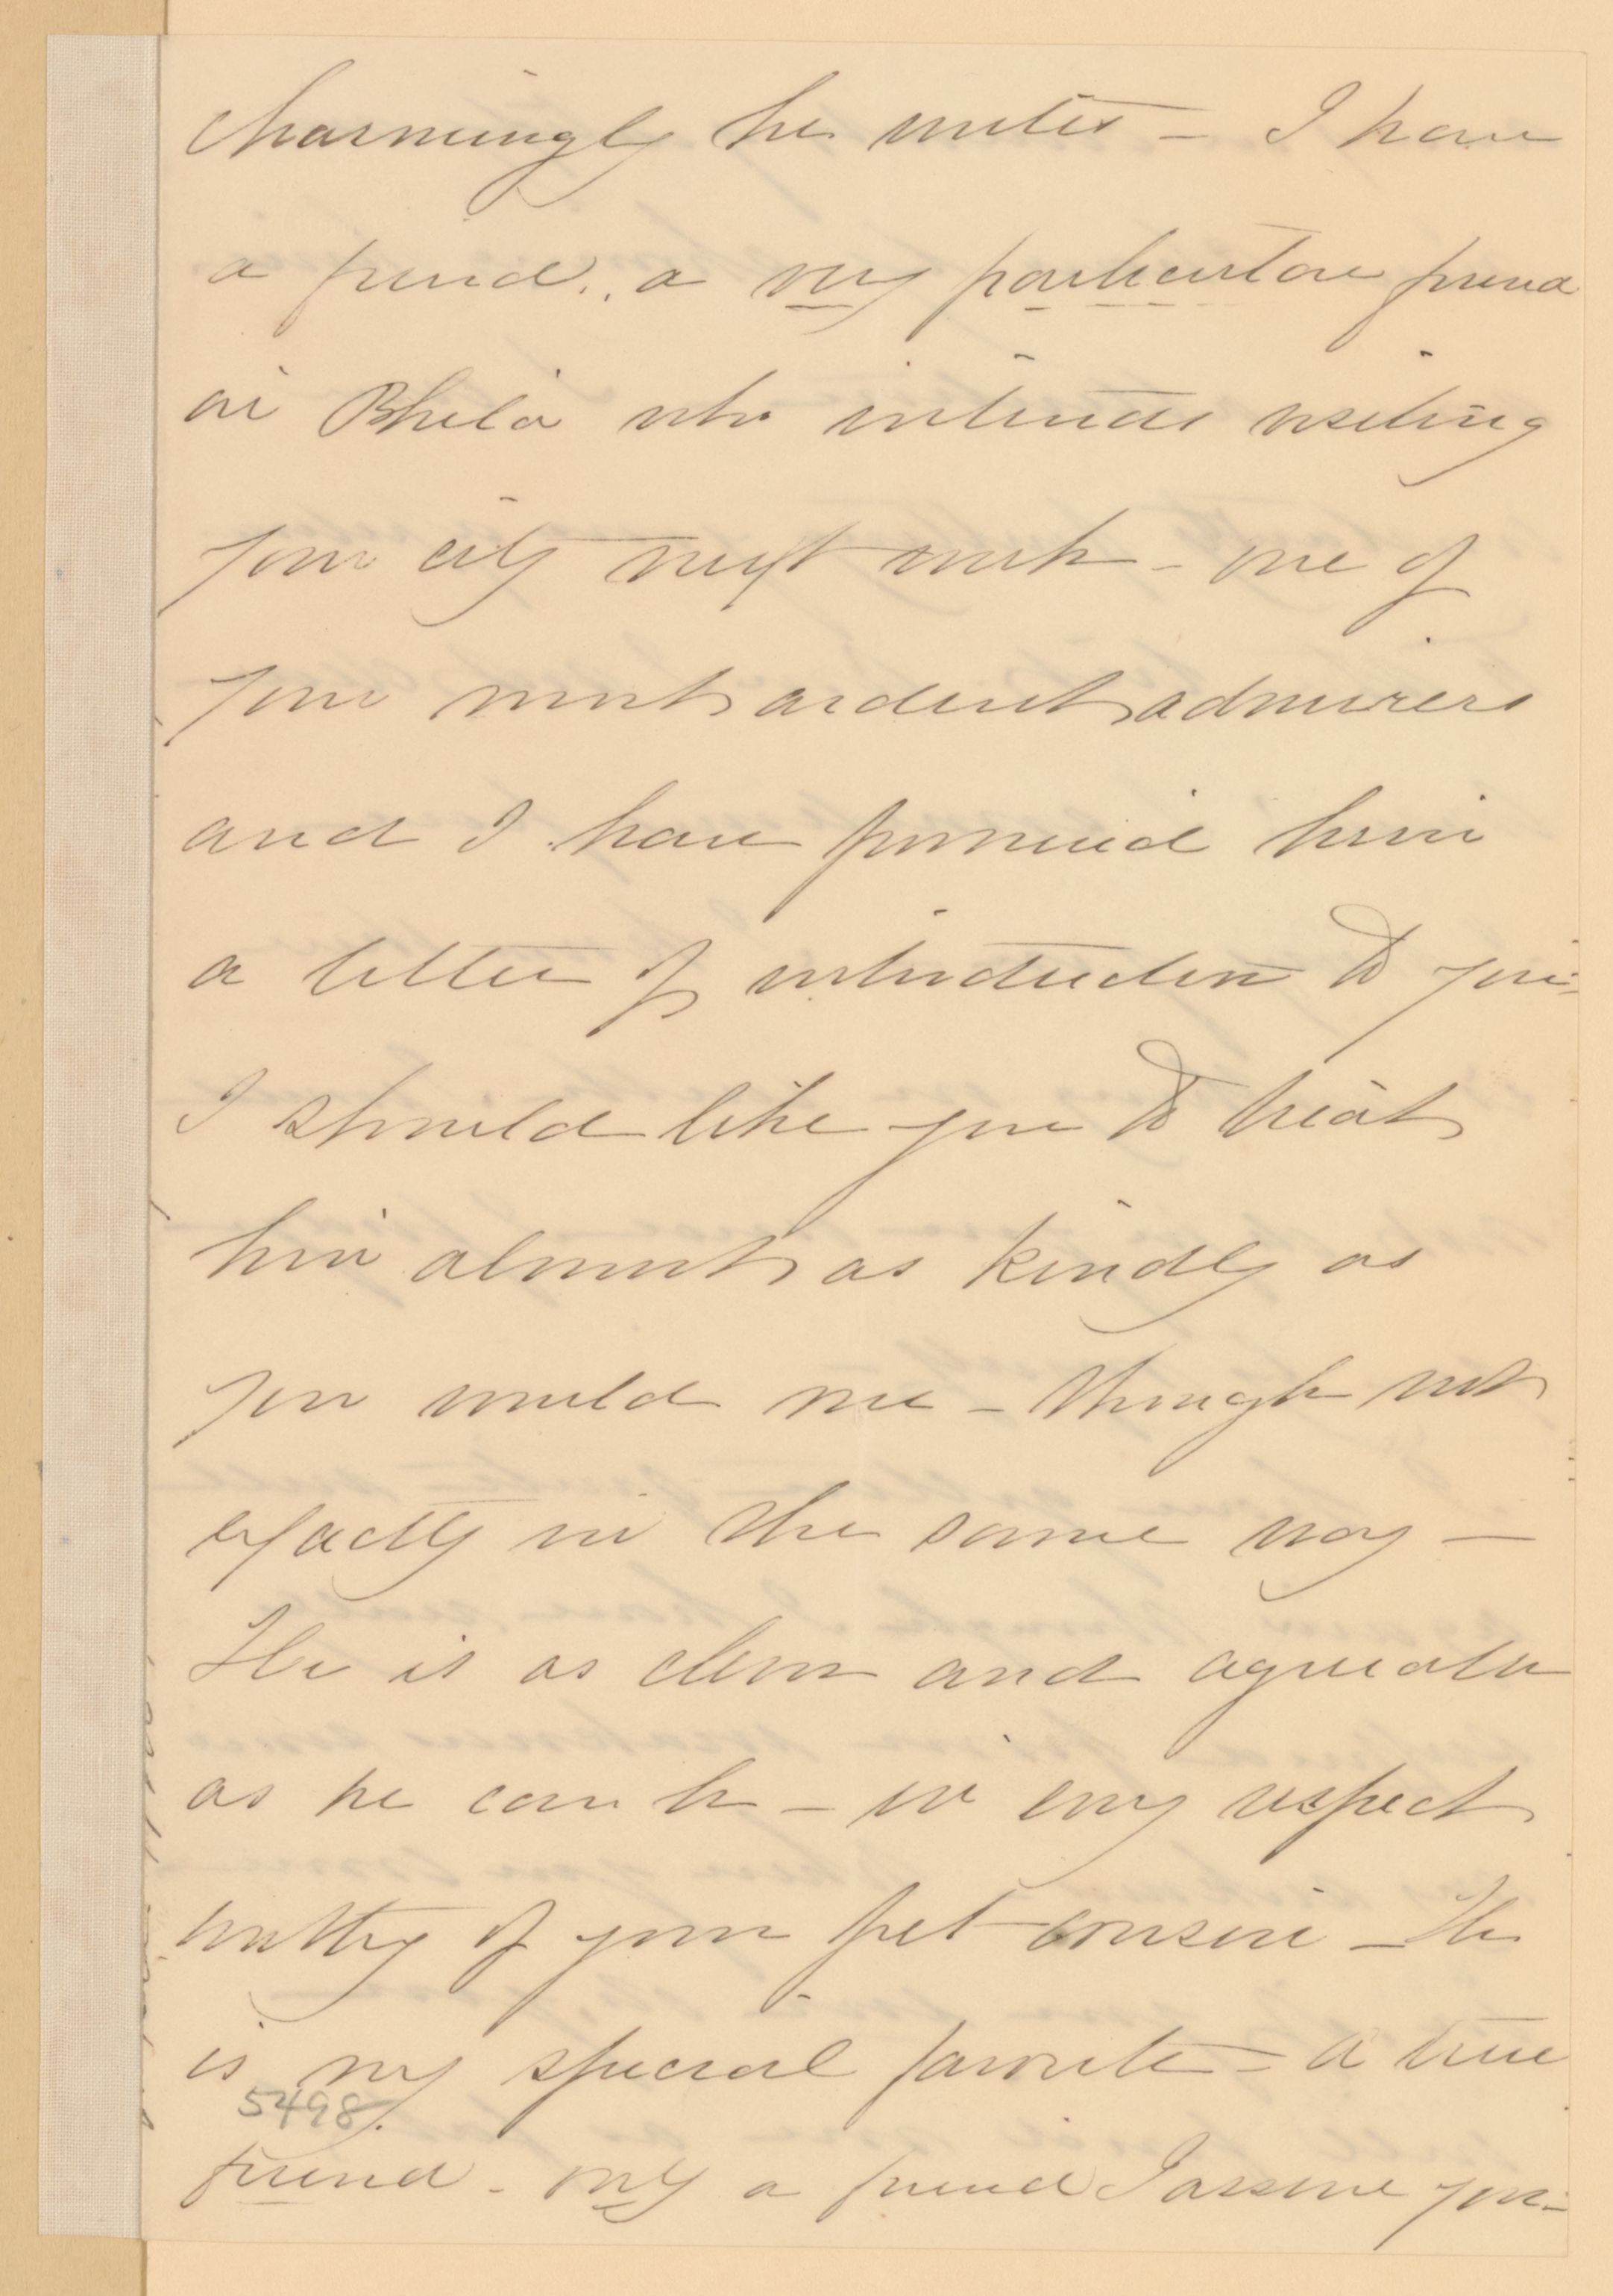 charmingly he writes – I have
a friend, a very particular friend
in Phila who intends visiting
your city next week – one of
your most ardent admirers
and I have promised him
a letter of introduction to you –
I should like you to treat
him almost as kindly as
you would me – though not
exactly in the same way –
He is as clever and agreeable
as he can be – in every respect
worthy of your pet cousin – He
is my special favorite – a true
5498
friend – only a friend I assure you –